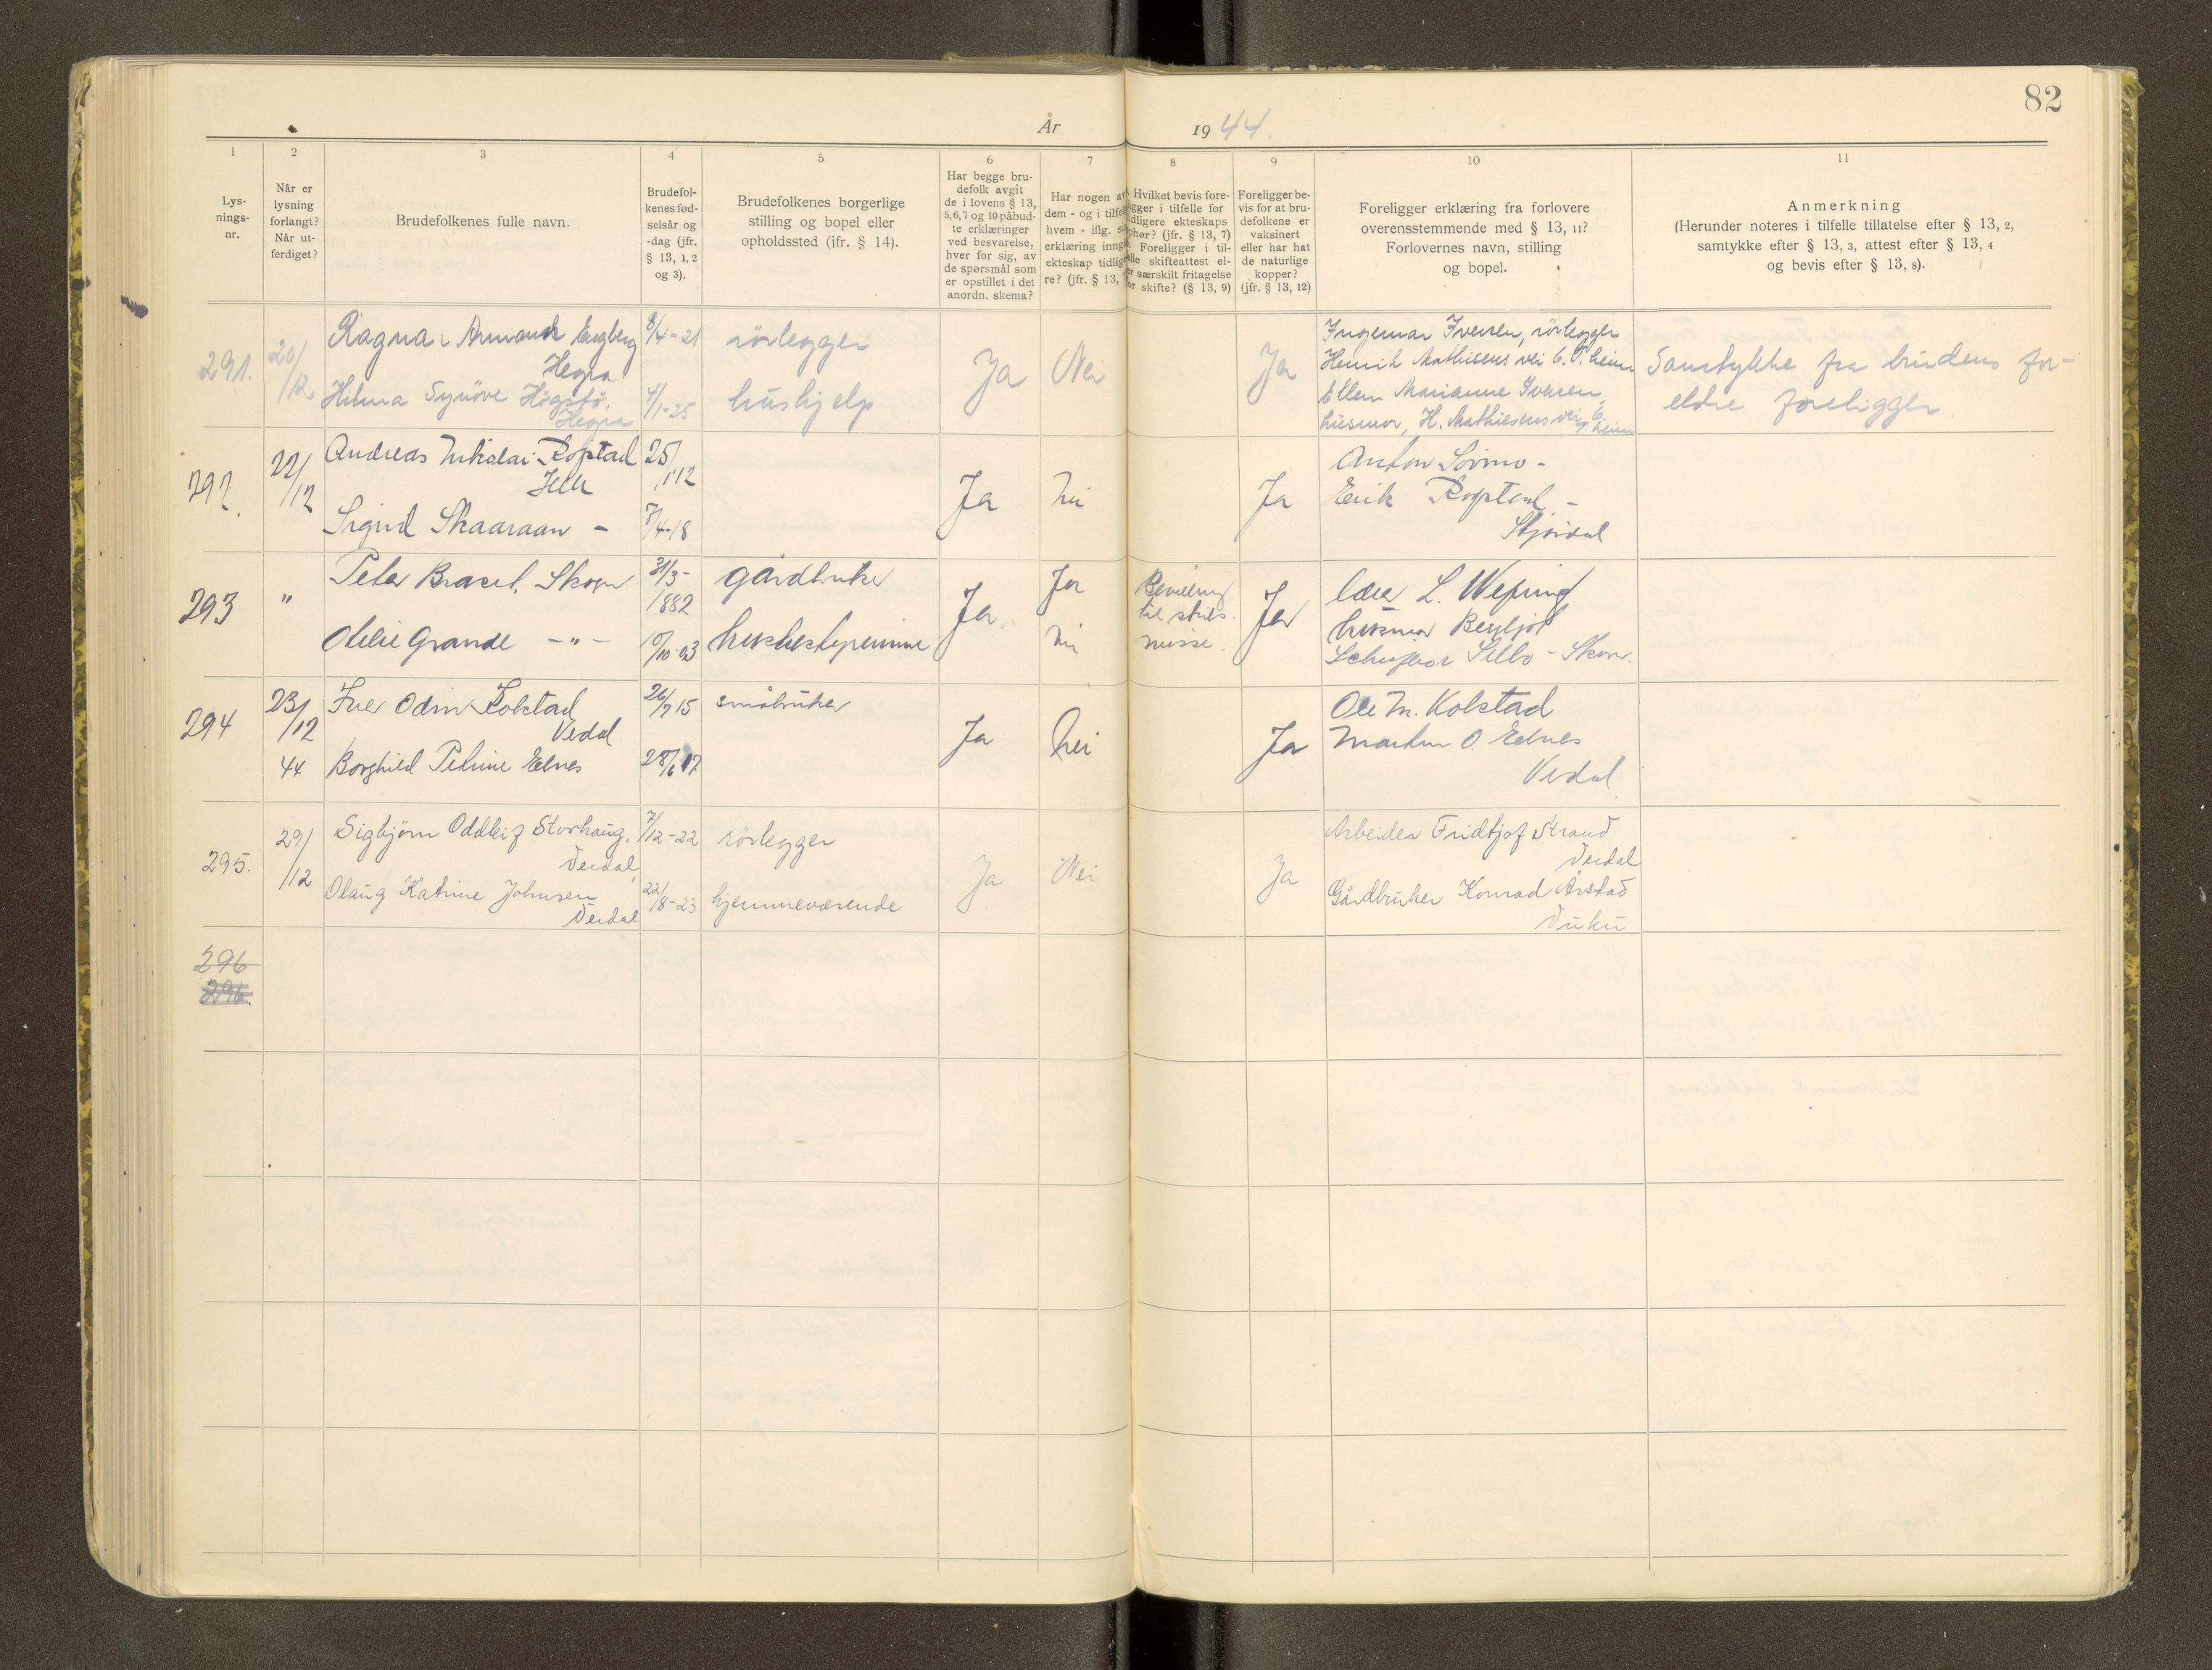 82
År 1944.
1 2 3 4 5 6 7 8 9 10 11
Lys-
nings-
nr.
Når er
lysning
forlangt?
Når ut-
ferdiget?
Brudefolkenes fulle navn.
Brudefol-
kenes fød-
selsår og
-dag (jfr.
§ 13, 1, 2
og 3).
Brudefolkenes borgerlige
stilling og bopel eller
opholdssted (ifr. § 14).
Har begge bru-
defolk avgit
de i lovens § 13,
5, 6, 7 og 10 påbud-
te erklæringer
ved besvarelse,
hver for sig, av
de spørsmål som
er opstillet i det
anordn. skema?
Har nogen av
dem - og i tilfe
hvem - iflg. s
erklæring inng
ekteskap tidlig
re? (jfr. § 13,
Hvilket bevis fore-
gger i tilfelle for
dligere ekteskaps
phør? (jfr. § 13, 7)
Foreligger i til-
elle skifteattest el-
er særskilt fritagelse
or skifte? (§ 13, 9)
Foreligger be-
vis for at bru-
defolkene er
vaksinert
eller har hat
de naturlige
kopper?
(jfr. § 13, 12)
Foreligger erklæring fra forlovere
overensstemmende med § 13, 11?
Forlovernes navn, stilling
og bopel.
Anmerkning
(Herunder noteres i tilfelle tillatelse efter § 13, 2,
samtykke efter § 13, 3, attest efter § 13, 4
og bevis efter § 13, 8).
291.
20/
/12
Ragnar Armand Engberg
Hegra
Hilma Synöve Högstö,
Hegra
8/4-21
4/1-25
rörlegger
hushjelp
Ja
Nei
Ja
Ingemar Iversen, rörlegger
Henrik Mathisens vei 6. T.heim
Ellen Marianne Iversen,
husmor, H. Mathisens vei 6
T.heim
Samtykke fra brudens for-
eldre foreligger.
292.
22/
/12
Andreas Nikolai Ropstad
Hell
Sigrid Skaaraan -
25/
/1 12
7/4-18
Ja
Nei
Ja
Anton Sörmo -
Erik Ropstad -
Stjördal
293
"
Peter Skogn
Otelie Grande - " -
31/3-
/882
/10-03
gårdbruker
husbestyrerinne
Ja
Ja
Nei
Bevilling
til skils-
misse.
Ja
L.
husmor Bergljot
Skogn.
294
23/
/12
44
Iver Odin Kolstad
Verdal
Borghild Petrine Ednes
26/7 15
28/6 17
småbruker
Ja
Nei
Ja
Ole M. Kolstad
Martin O. Ednes
Verdal
295.
29/
/12
Sigbjörn Oddleif Storhaug,
Verdal,
Olaug Katrine Johnsen
Verdal
7/12-22
22/8-23
rörlegger
hjemmeværende
Ja
Nei
Ja
Arbeider Fridtjof Strand
Verdal
Gårdbruker Konrad Årstad
Vuku
296
296.